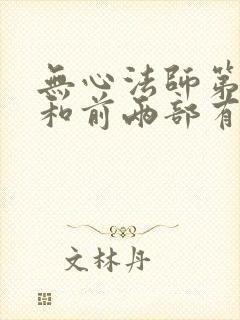 無心法師第
和前兩部有
文林丹